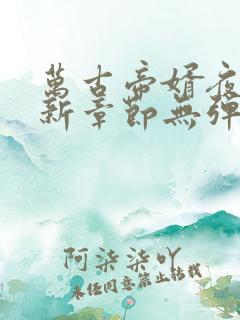 萬古帝婿夜
新章節無彈
阿柒柒吖
未經同意禁止轉載